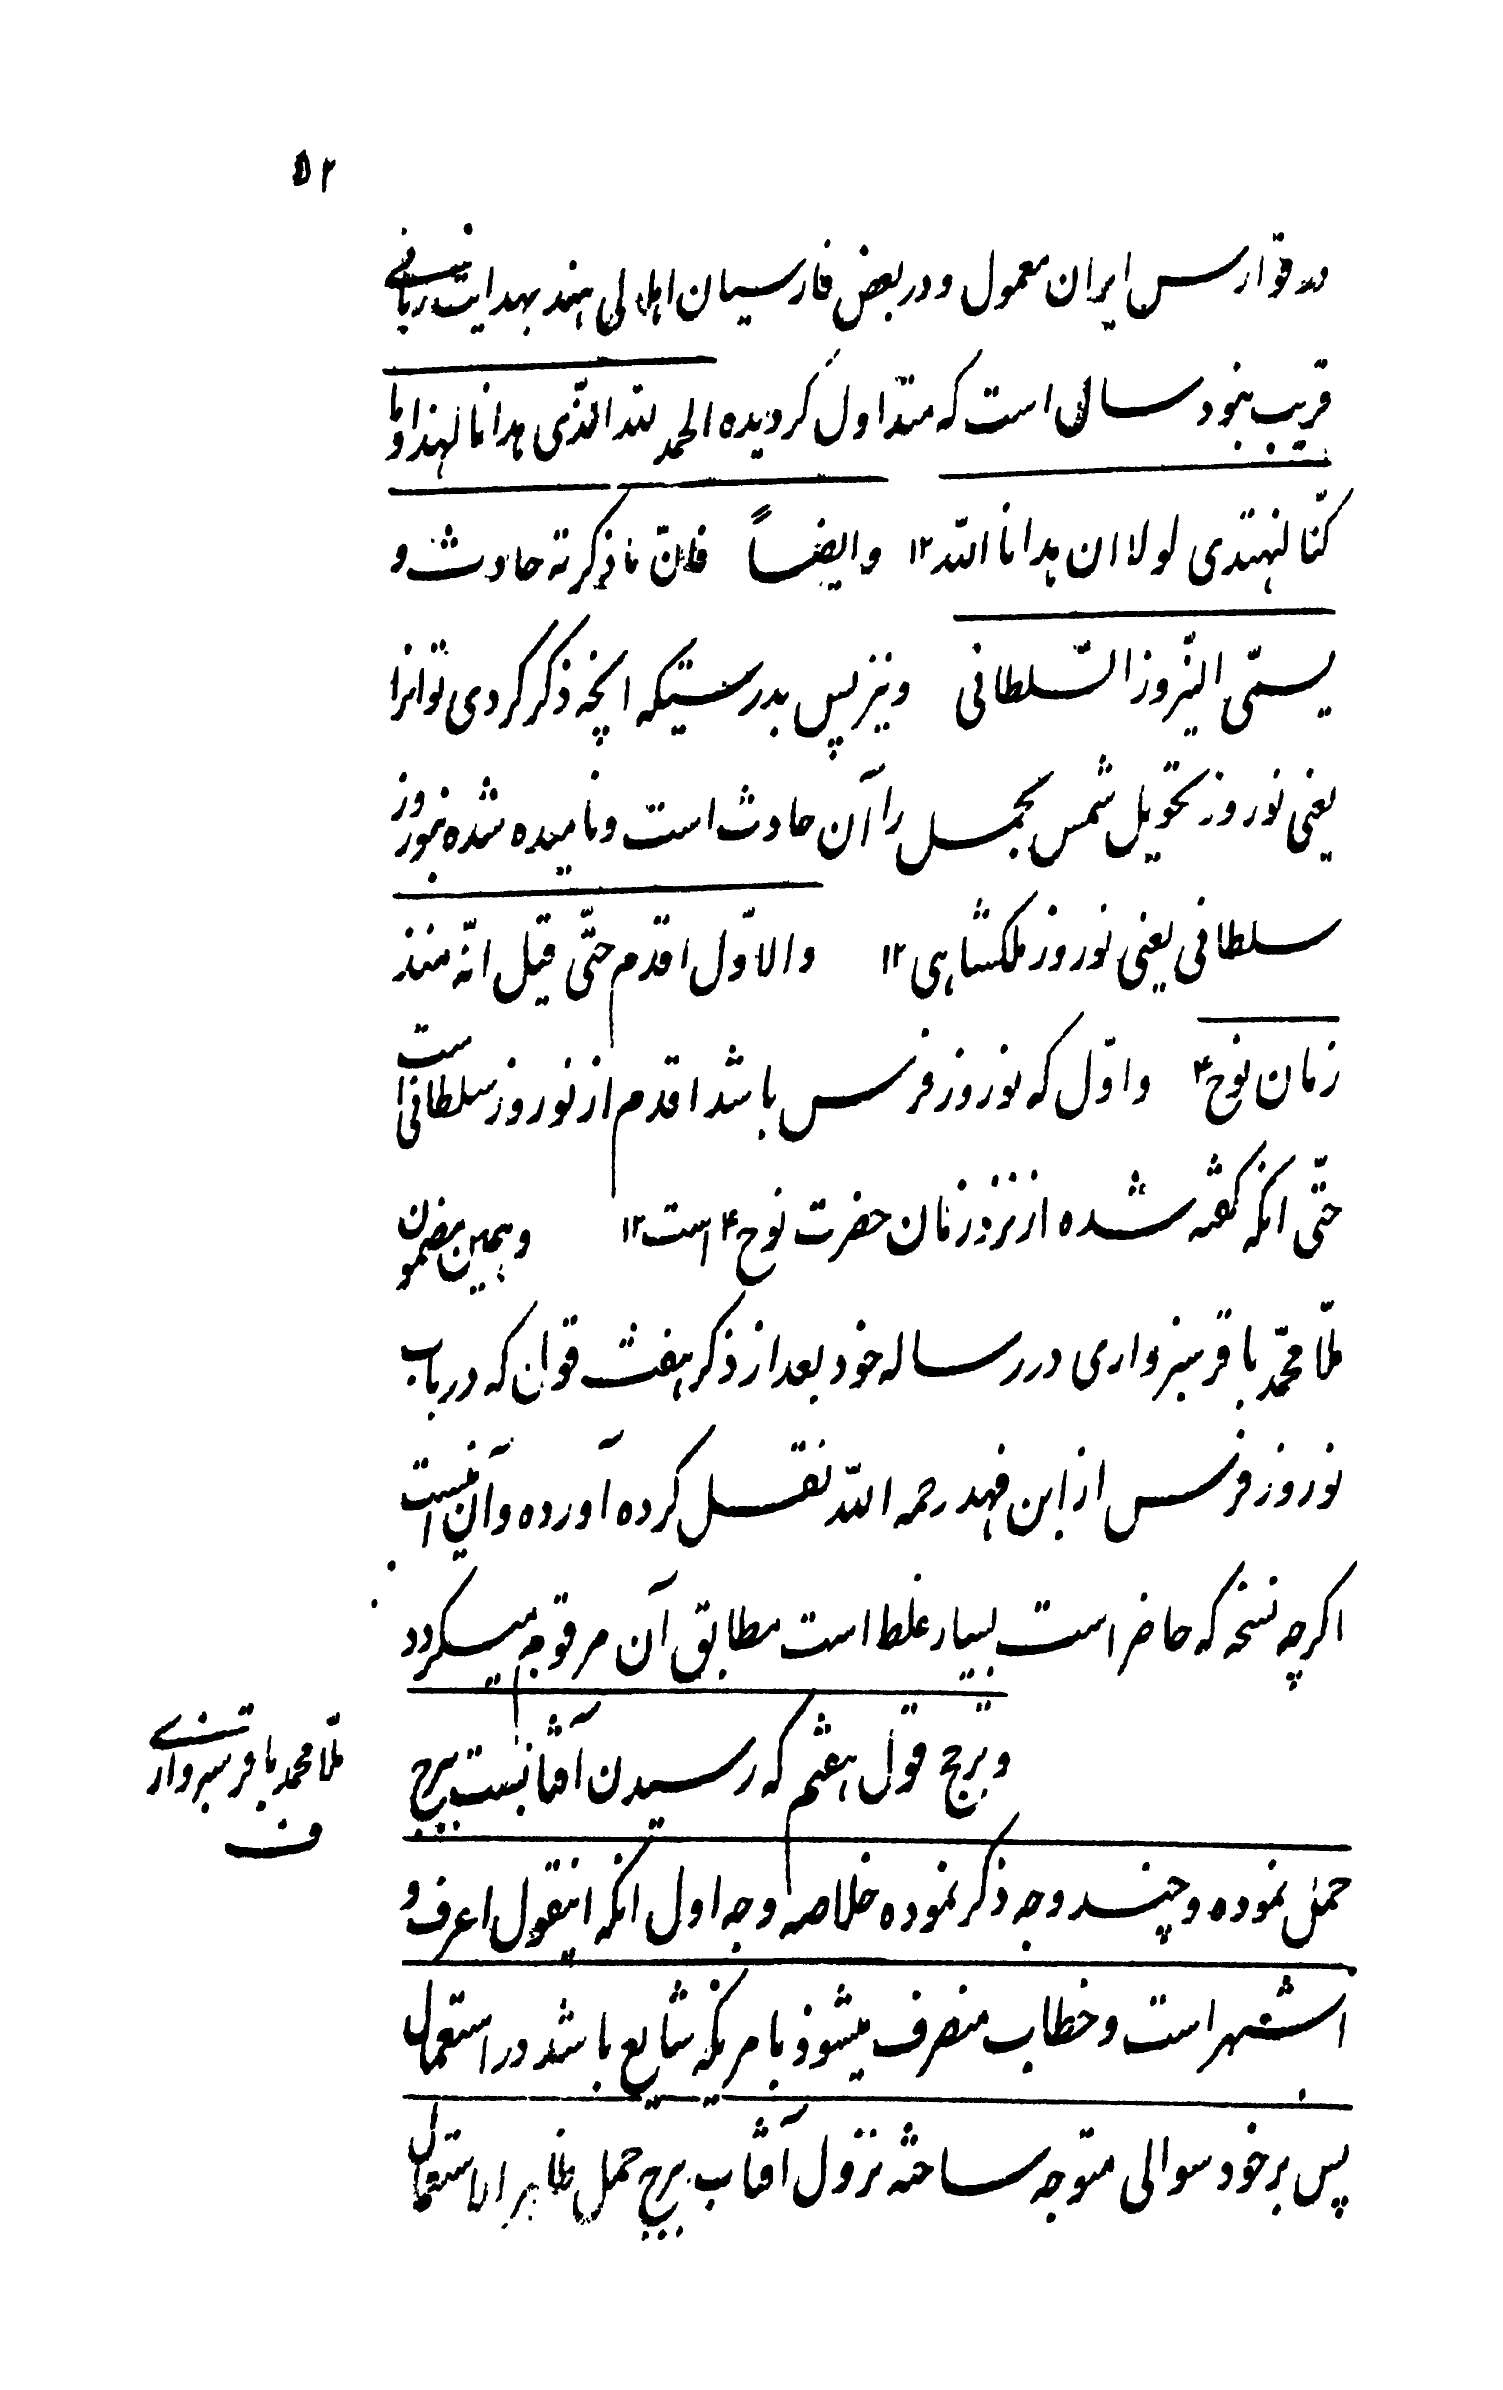 ۵۲
در فوارس ایران معمول و در بعض فارسیان اهالی هند بهدایت ربانی
قریب بنود سالی است که متداول گردیده الحمد لله الّذی هدانا لهذا و ما
کنّا لنهتدی لولا ان هدانا اللّه ۱۲ وایضاً فانّ ما ذکرته حادث و
یسمّی النّیروز السّلطانی و نیز پس بدرستیکه انچه ذکر کردی تو انرا
یعنی نوروز تحویل شمس بحمل را آن حادث است و نامیده شده بنوروز
سلطانی یعنی نوروز ملکشاهی ۱۲ والاوّل اقدم حتّی قیل انّه منذ
زمان نوح ع و اوّل که نوروز فرس باشد اقدم از نوروز سلطانی است
حتّی انکه گفته شده از نزد زمان حضرت نوح ع است ۱۲ و همین مضمون
ملّا محمّد باقر سبزواری در رساله خود بعد از ذکر هفت قول که در باب
نوروز فرس از ابن فهد رحمه اللّه نقل کرده آورده و آن اینست
اکرچه نسخه که حاضر است بسیار غلط است مطابق آن مرقوم میکردد
و ترجیح قول هفتم که رسیدن آفتابست ببرج
حمل نموده و چند وجه ذکر نموده خلاصه وجه اول انکه اینقول اعرف و
اشهر است و خطاب منصرف میشود بامریکه شایع باشد در استعمال
پس بر خود سوالی متوجه ساخته نزول آفتاب ببرج حمل ظاهر الاستعمال
ملّا محمد باقر سبزواری
ف